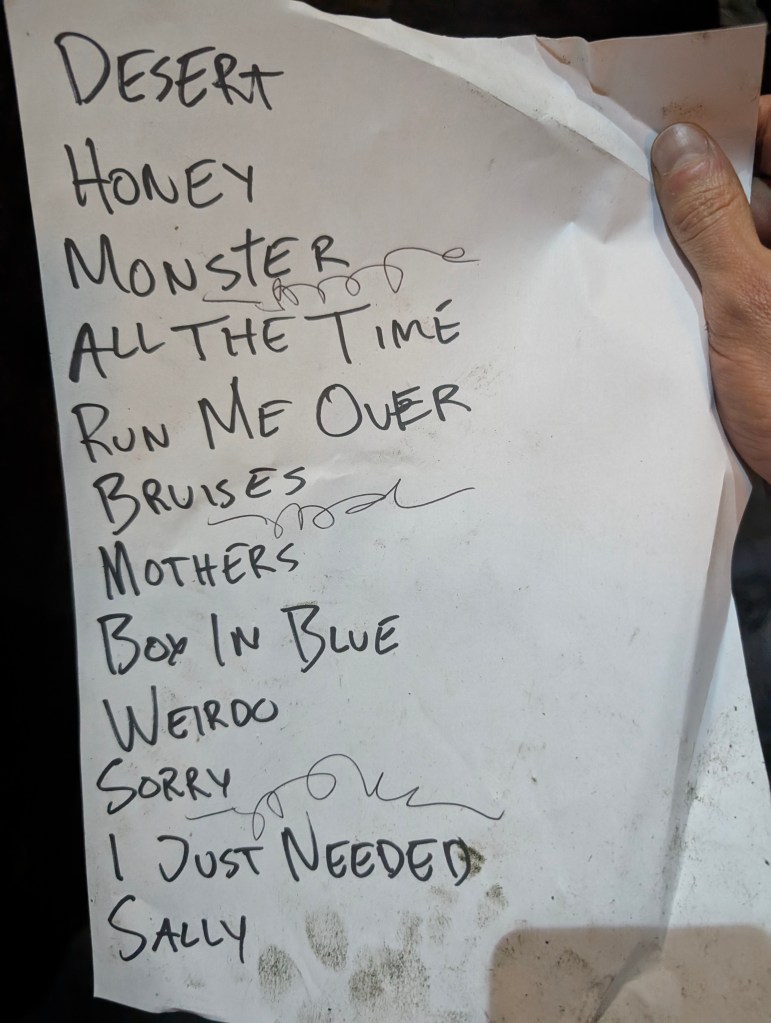 DESERT
HONEY
MONSTER
ALL THE TIME
RUN ME OVER
BRUISES
MOTHERS
BOY IN BLUE
WEIRDO
SORRY
I JUST NEEDED
SALLY